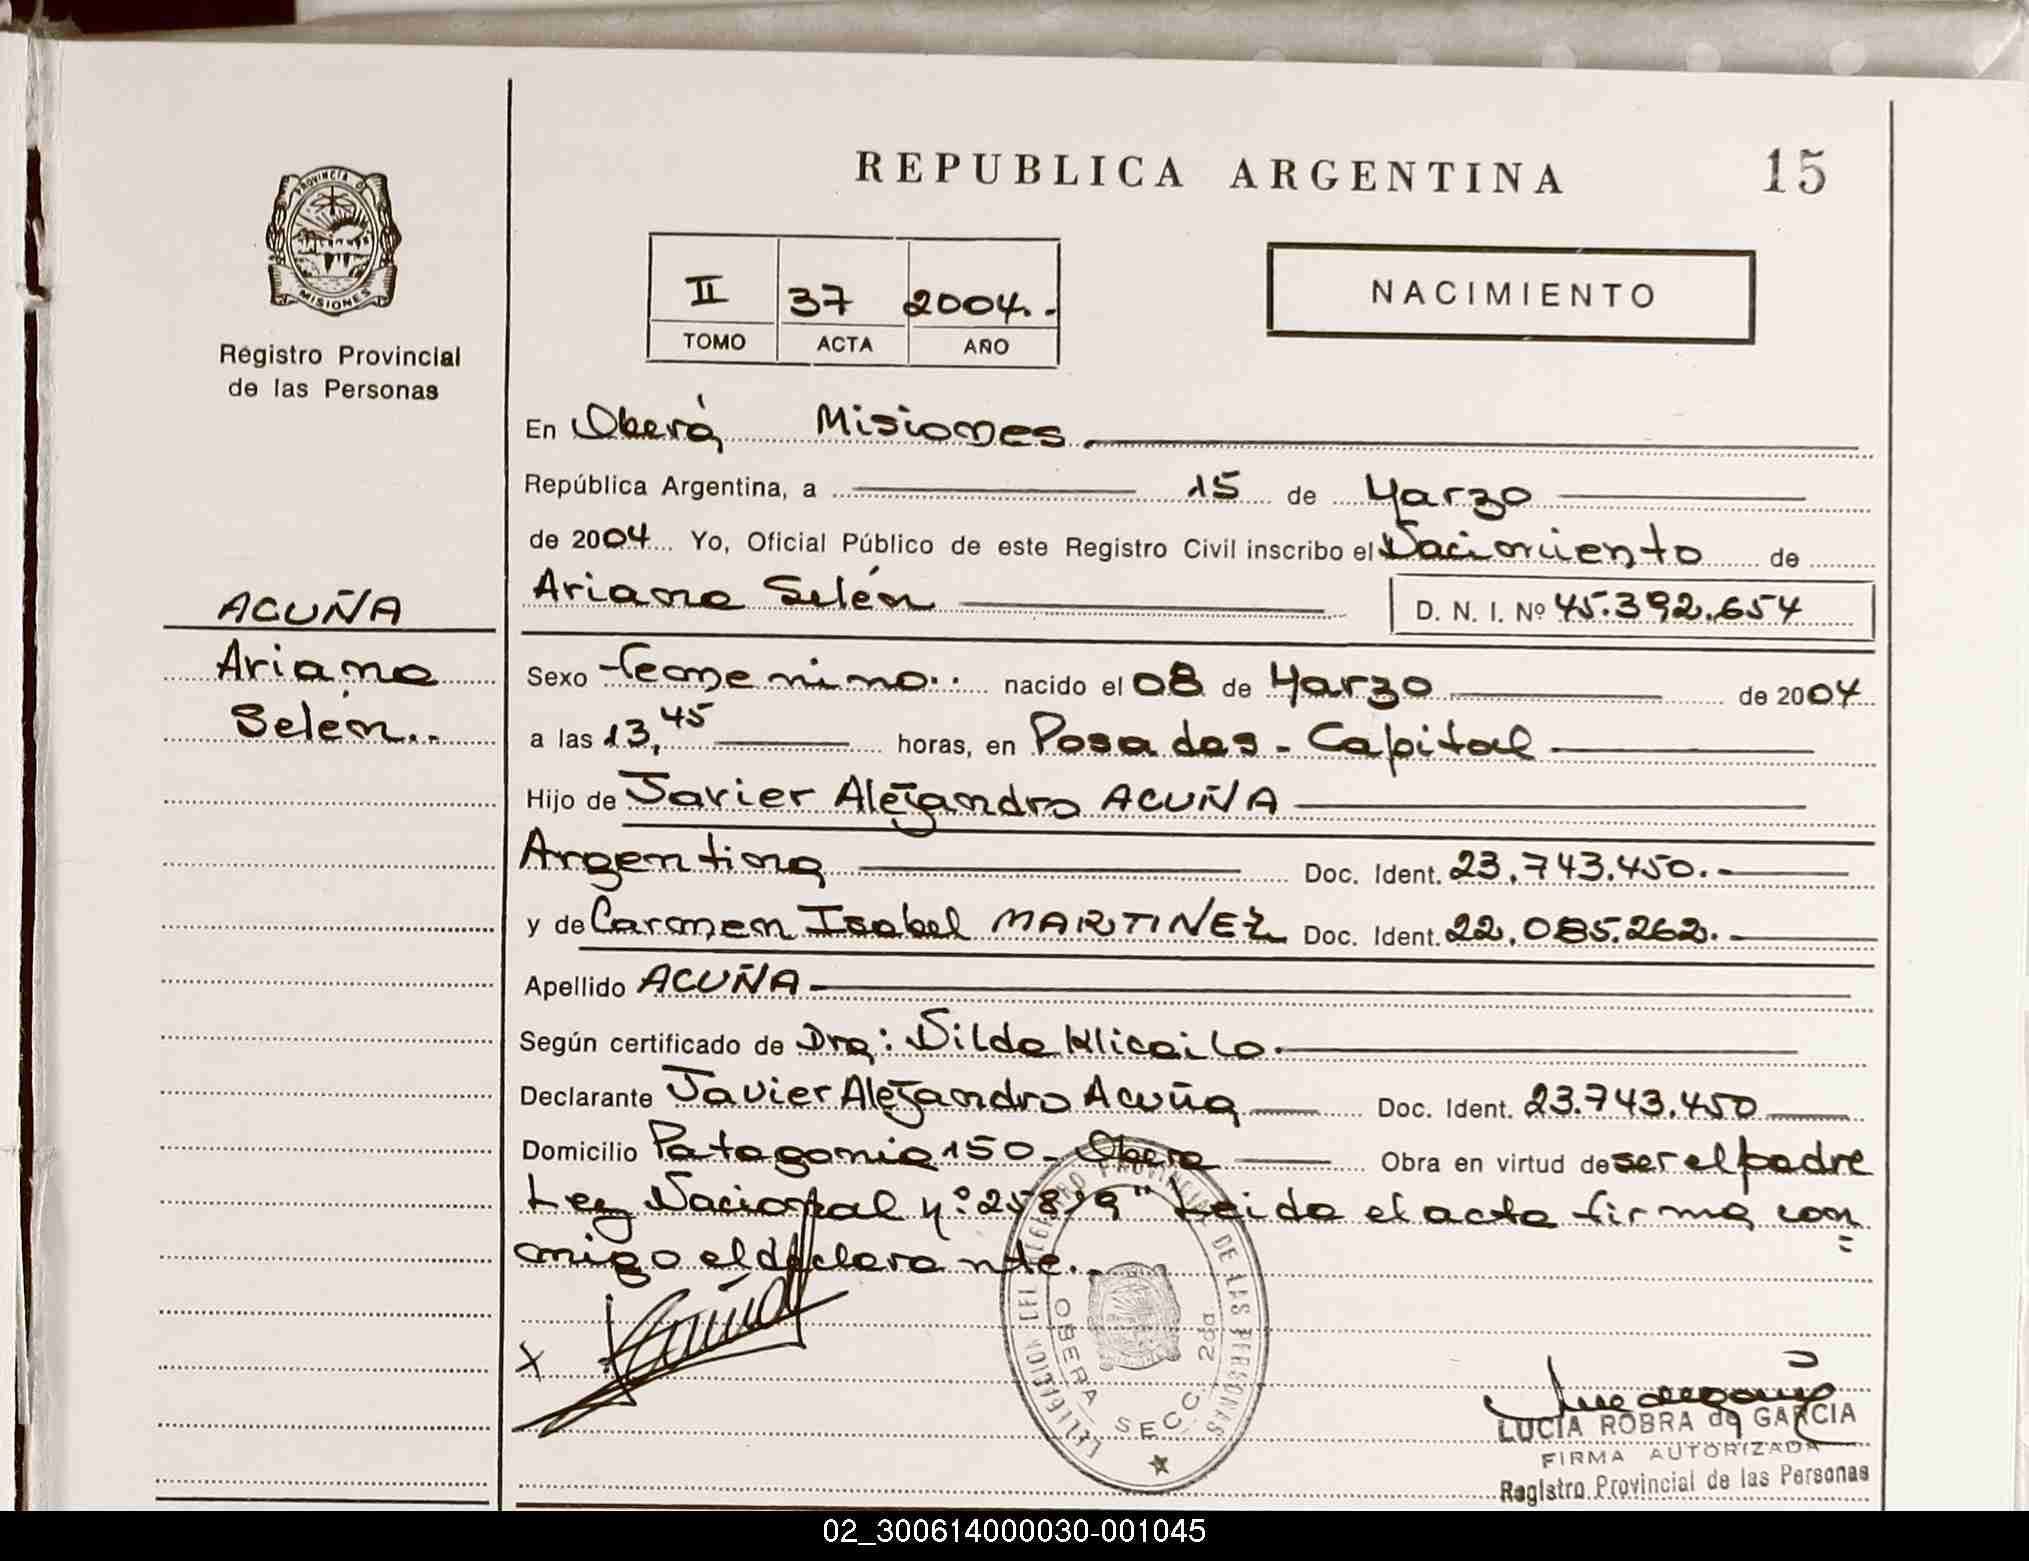 REPUBLICA ARGENTINA 15
PROVINCIA DE
MISIONES
Registro Provincial
de las Personas
II 37 2004.-
TOMO ACTA AÑO
NACIMIENTO
En Oberá Misiones
República Argentina, a 15 de Marzo
de 2004 Yo, Oficial Público de este Registro Civil inscribo el Nacimiento de
Ariana Selén D. N. I. Nº 45.392.654
ACUÑA
Ariana
Selén..
Sexo femenino.. nacido el 08 de Marzo de 2004
a las 13,45 horas, en Posadas - Capital
Hijo de Javier Alejandro ACUÑA
Argentina Doc. Ident. 23.743.450.-
y de Carmen Isabel MARTINEZ Doc. Ident. 22.085.262.-
Apellido ACUÑA
Según certificado de Dra: Nilda
Declarante Javier Alejandro Acuña Doc. Ident. 23.743.450
Domicilio Patagonia 150 - Obera Obra en virtud de ser el padre
Ley Nacional nº: "Leida el acta firma con
migo el declarante.-
X
REGISTRO PROVINCIAL DE LAS PERSONAS
OBERA SECC. 2da
LUCIA ROBRA de GARCIA
FIRMA AUTORIZADA
Registro Provincial de las Personas
02_300614000030-001045